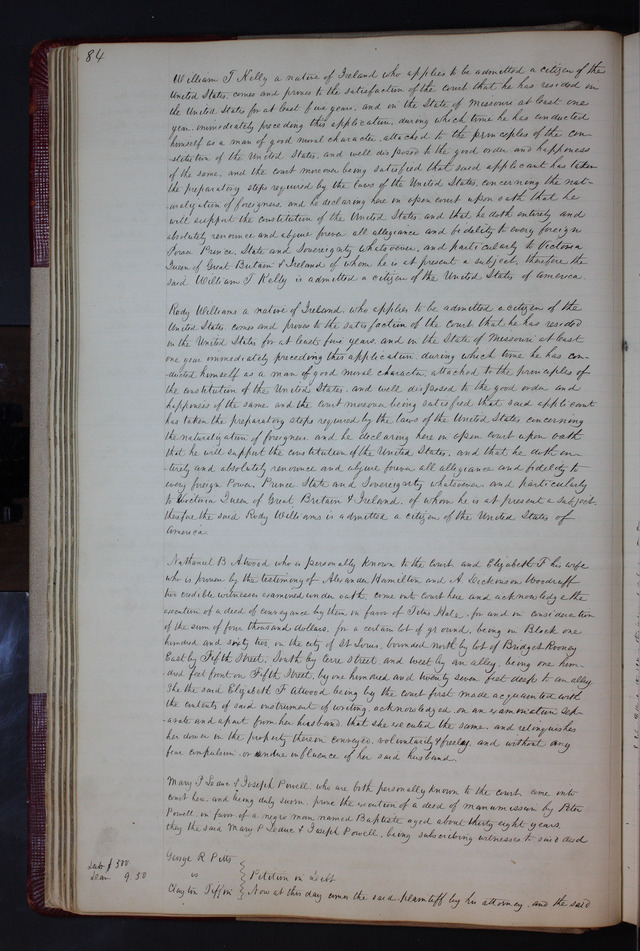 84
William T Kelly a native of Ireland who applies to be admitted a citizen of the
United States, comes and proves to the satisfaction of the court that he has resided in
the United States for at least five years, and in the State of Missouri at least one
year, immediately preceding this application, during which time he has conducted
himself as a man of good moral character, attached to the principles of the con-
-stitution of the United States, and well disposed to the good order and happiness
of the same, and the court moreover being satisfied that said applicant has taken
the preparatory steps required by the laws of the United States, concerning the nat-
-uralization of foreigners, and he declaring here in open court upon oath that he
will support the constitution of the United States, and that he doth entirely and
absolutely renounce and abjure forever all allegiance and fidelity to every foreign
Power Prince, State and Sovereignty whatsoever, and particularly to Victoria
Queen of Great Britain & Ireland of whom he is at present a subject, therefore the
said William T Kelly is admitted a citizen of the United States of America.
Rody Williams a native of Ireland, who applies to be admitted a citizen of the
United States, comes and proves to the satisfaction of the court that he has resided
in the United States for at least five years, and in the State of Missouri at least
one year immediately preceding this application, during which time he has con-
-ducted himself as a man of good moral character, attached to the principles of
the constitution of the United States, and well disposed to the good order and
happiness of the same and the court moreover being satisfied that said applicant
has taken the preparatory steps required by the laws of the United States concerning
the naturalization of foreigners and he declaring here in open court upon oath
that he will support the constitution of the United States, and that he doth en-
-tirely and absolutely renounce and abjure forever all allegiance and fidelity to
every foreign Power, Prince State and Sovereignty whatsoever and particularly
to Victoria Queen of Great Britain & Ireland, of whom he is at present a subject.
therefore the said Rody Williams is admitted a citizen of the United States of
America
Nathaniel B Atwood who is personally known to the court and Elizabeth F his wife
who is proven by the testimony of Alexander Hamilton and A. Dickinson Woodruff
two credible witnesses examined under oath, come into court here and acknowledge the
execution of a deed of conveyance by them in favor of Hale, for and in consideration
of the sum of four thousand dollars, for a certain lot of ground, being in Block one
hundred and sixty two in the city of St Louis, bounded north by lot of Bridget Rooney
East by Fifth Street, South by street and west by an alley, being one hun-
dred feet front on Fifth Street, by one hundred and twenty seven feet deep to an alley
She the said Elizabeth F Atwood being by the court first made acquainted with
the contents of said instrument of writing, acknowledged on an examination sep-
arate and apart from her husband, that she executed the same, and relinquishes
her dower in the property therein conveyed, voluntarily & freely, and without any
fear compulsion, or undue influence of her said husband.
Mary P Leduc & Joseph Powell, who are both personally known to the court, come into
court here and being duly sworn, prove the execution of a deed of manumission by Peter
Powell, in favor of a negro man named Baptiste aged about thirty eight years.
they the said Mary P Leduc & Joseph Powell, being subscribing witnesses to said deed
George R Pitts
vs
Clayton Tiffin
Petition in debt
Debt $ 500
Dam 9.50
Now at this day comes the said plaintiff by his attorney, and the said